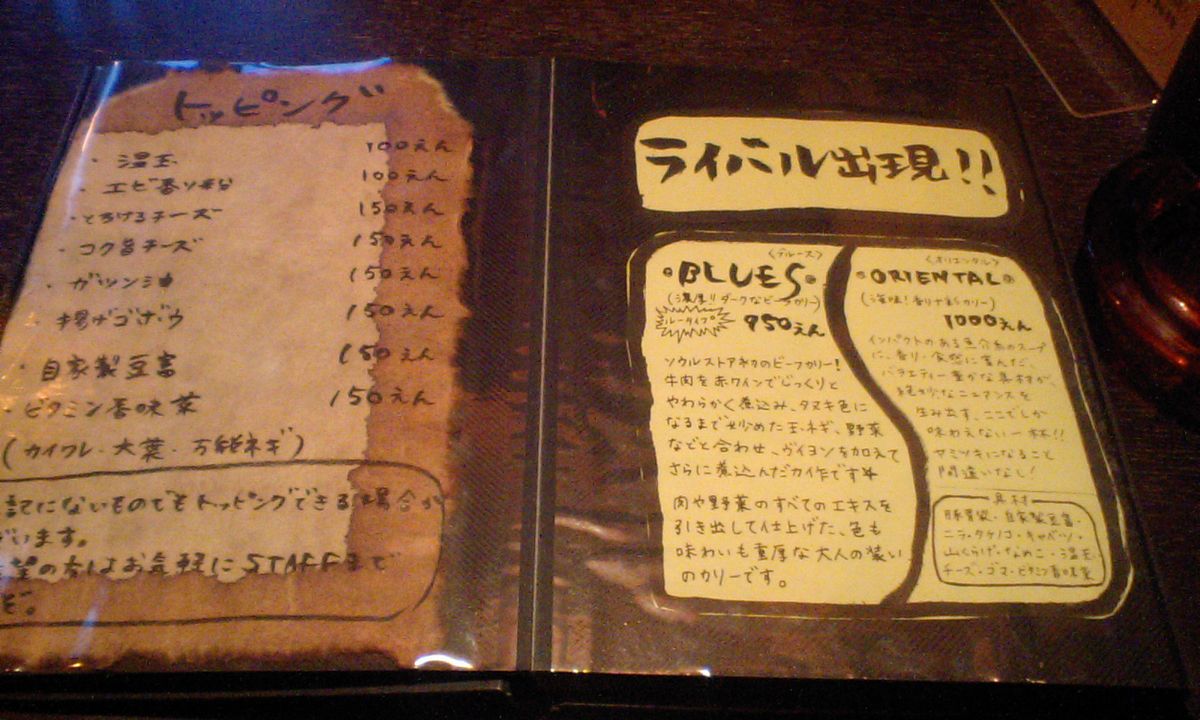 トッピング
・温玉 100えん
・エビ香り 100えん
・とろけるチーズ 150えん
・コク旨チーズ 150えん
・ガツン油 150えん
・揚げゴボウ 150えん
・自家製豆富 150えん
・ビタミン香味菜 150えん
(カイワレ・大葉・万能ネギ)
記にないものでもトッピングできる場合が
ざいます。
望の方はお気軽にSTAFFまで
ぞ。
ライバル出現!!
<ブルース>
BLUES
(濃厚!!ダークなビーフカリー)
ルータイプ 950えん
ソウルストアネクのビーフカリー!
牛肉を赤ワインでじっくりと
やわらかく煮込み、タヌキ色に
なるまで炒めた玉ネギ、野菜
などと合わせ、ヴイヨンを加えて
さらに煮込んだカ作です
肉や野菜のすべてのエキスを
引き出して仕上げた、色も
味わいも重厚な大人の装い
のカリーです。
<オリエンタル>
ORIENTAL
(滋味!香りカリー)
1000えん
インパクトのある魚介系のスープ
に、香り・食感に富んだ、
バラエティー豊かな具材が、
絶妙なニュアンスを
生み出す、ここでしか
味わえない一杯!!
ヤミツキになること
間違いなし!
具材
豚角煮・自家製豆富・
ニラ・タケノコ・キャベツ・
山くらげ・なめこ・温玉
チーズ・ゴマ・ビタミン香味菜